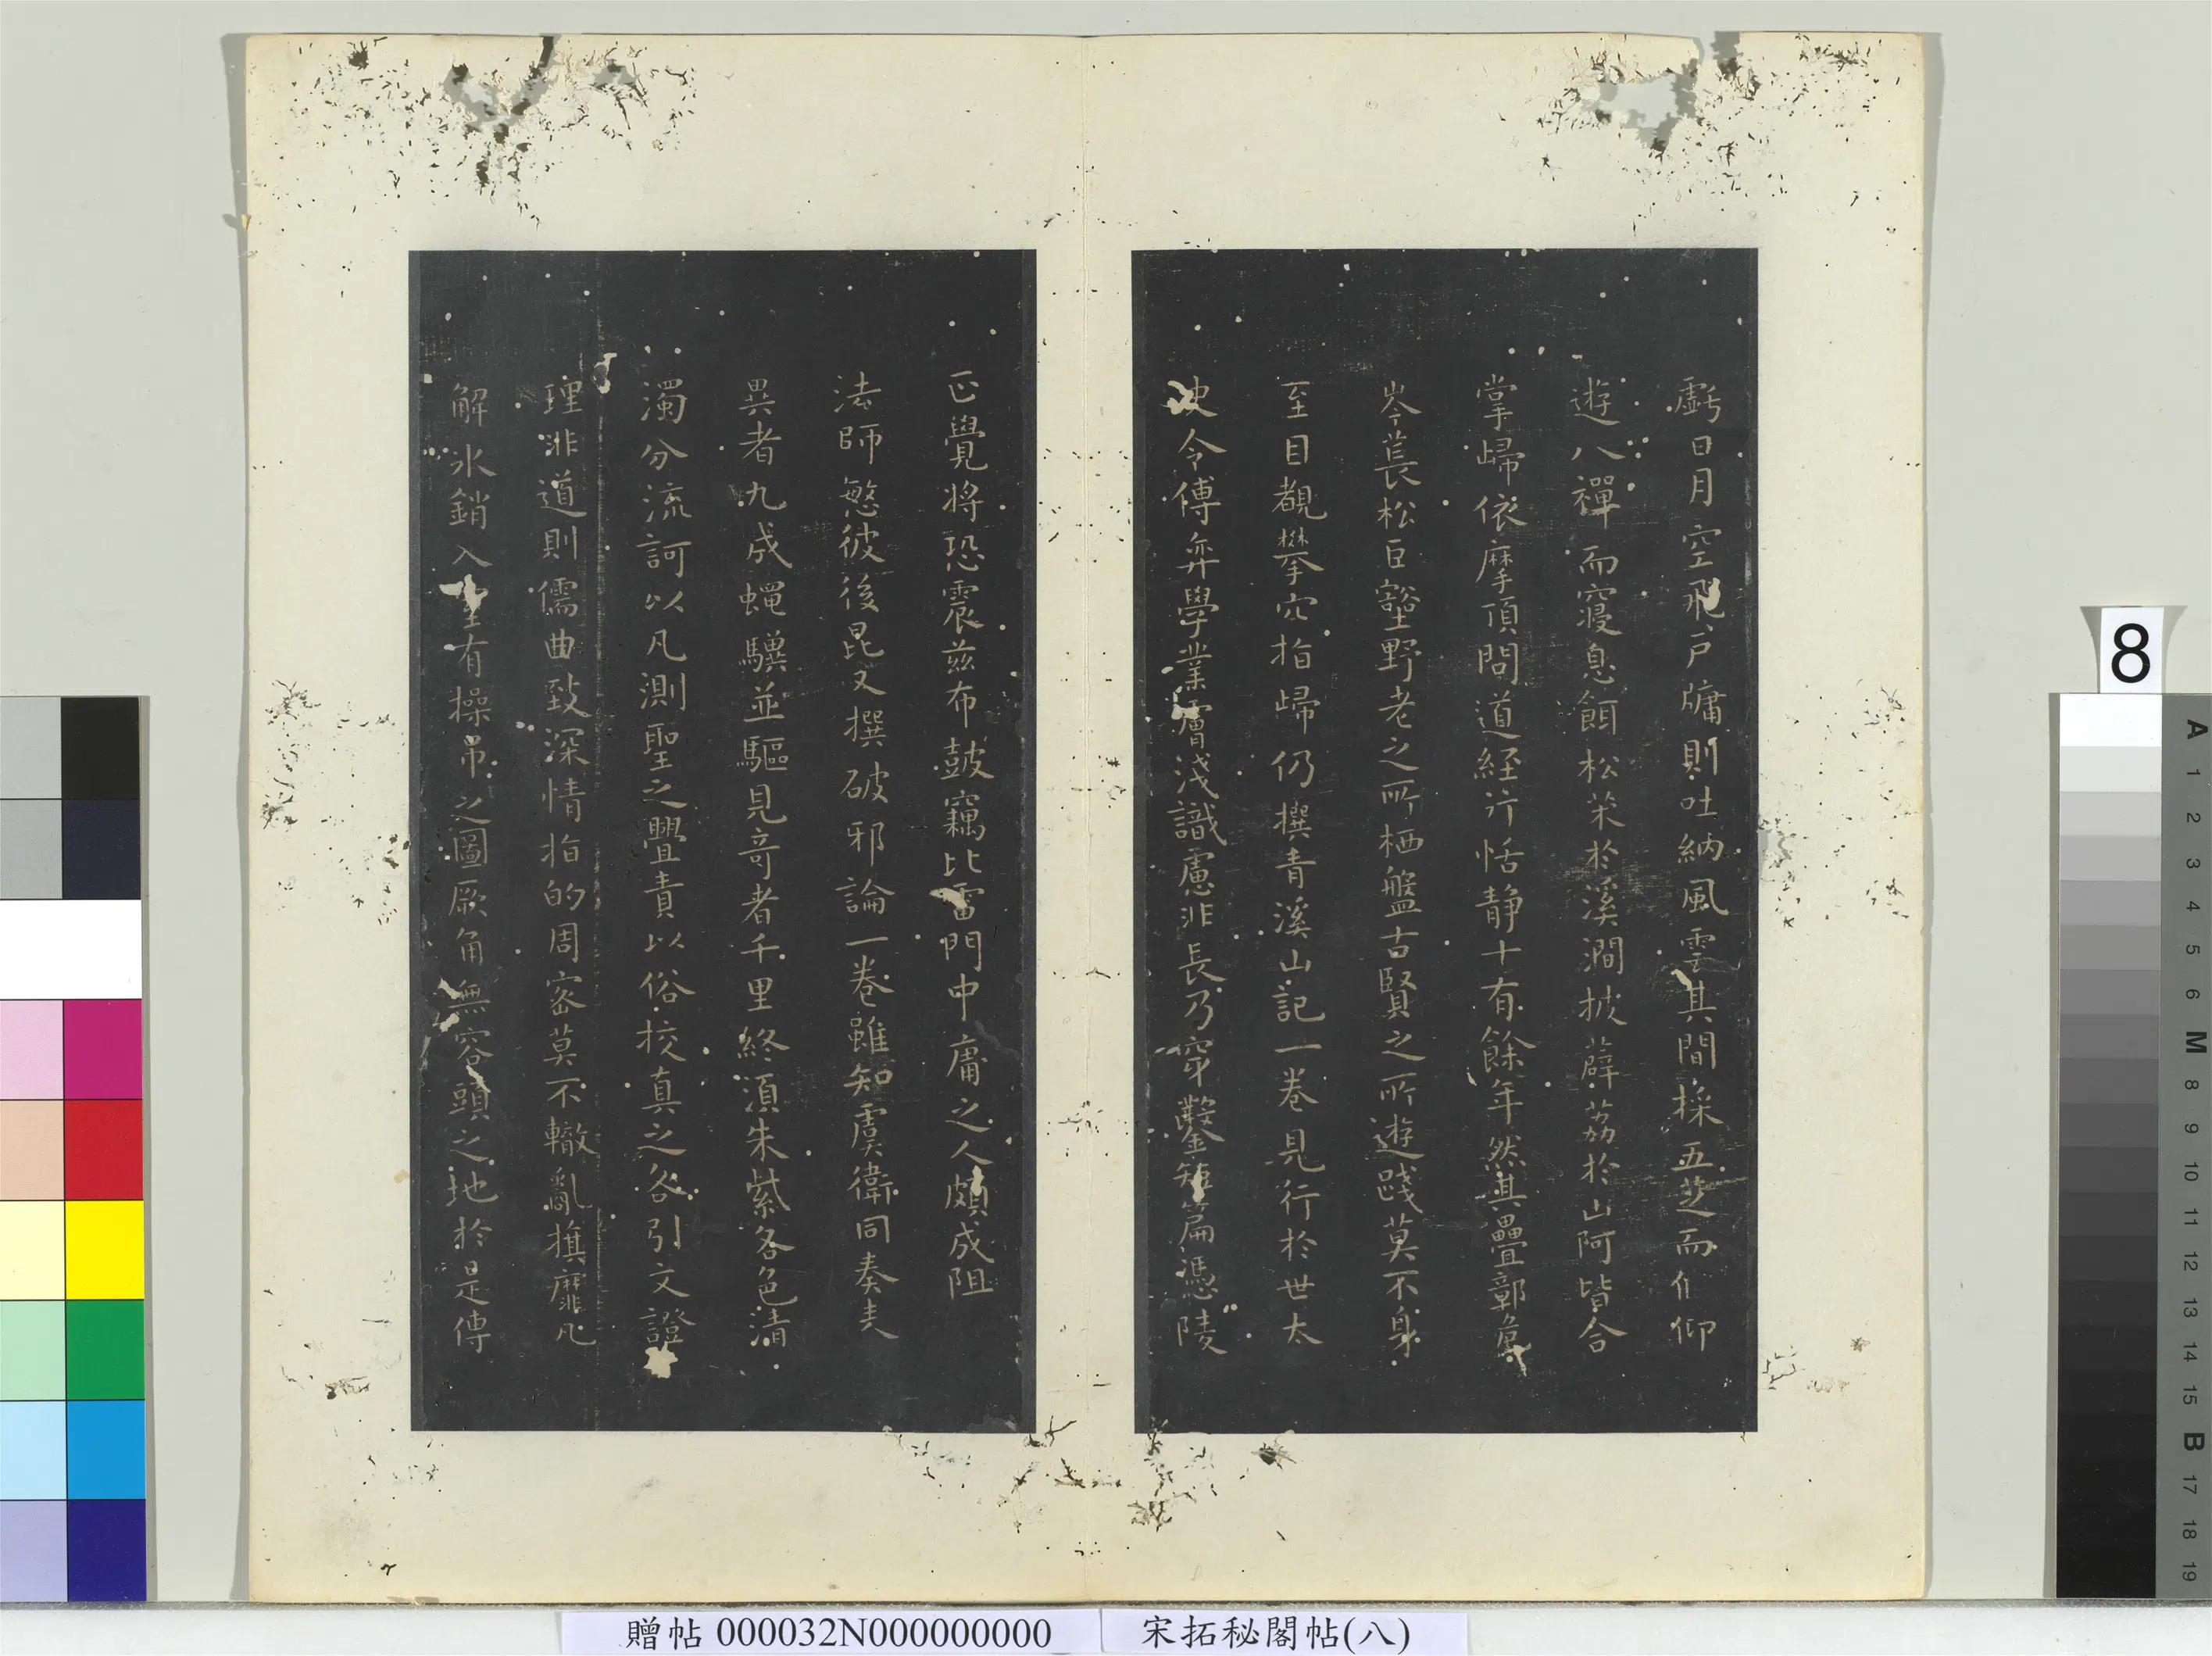 虧日月空飛戶牖則吐納風雲其間採五芝而偃仰
遊八禪而寢息餌松朮於溪澗披薜荔於山阿皆合
掌歸依摩頂問道経行恬靜十有餘年然其疊鄣危
岑萇松巨壑野老之所栖盤古賢之所遊踐莫不身
至目覩攀穴指歸仍撰青溪山記一卷見行於世太
史令傅弈學業膚淺識慮非長乃穿鑿短篇憑陵
正覺將恐震茲布皷竊比雷門中庸之人頗成阻
法師慜彼後昆又撰破邪論一卷雖知虞衛同奏表
異者九成蠅驥並驅見奇者千里終須朱紫各色清
濁分流訶以凡測聖之舋責以俗校真之咎引文證
理非道則儒曲致深情指的周密莫不轍亂旗靡凡
解氷銷入室有操吊之圖厥角無容頭之地於是傳
8
A
1
2
3
4
5
6
M
8
9
10
11
12
13
14
15
B
17
18
19
贈帖 000032N000000000
宋拓秘閣帖(八)